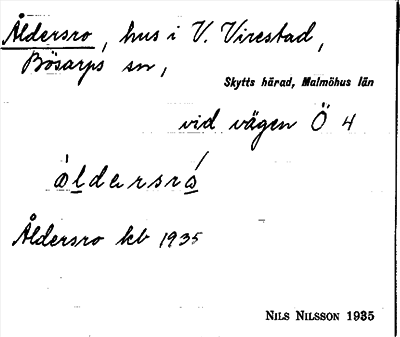 Åldersro, hus i V. Virestad,
Bösarps sn,
Skytts härad, Malmöhus län
vid vägen Ö 4
åldersrå
Åldersro kb 1935
NILS NILSSON 1935